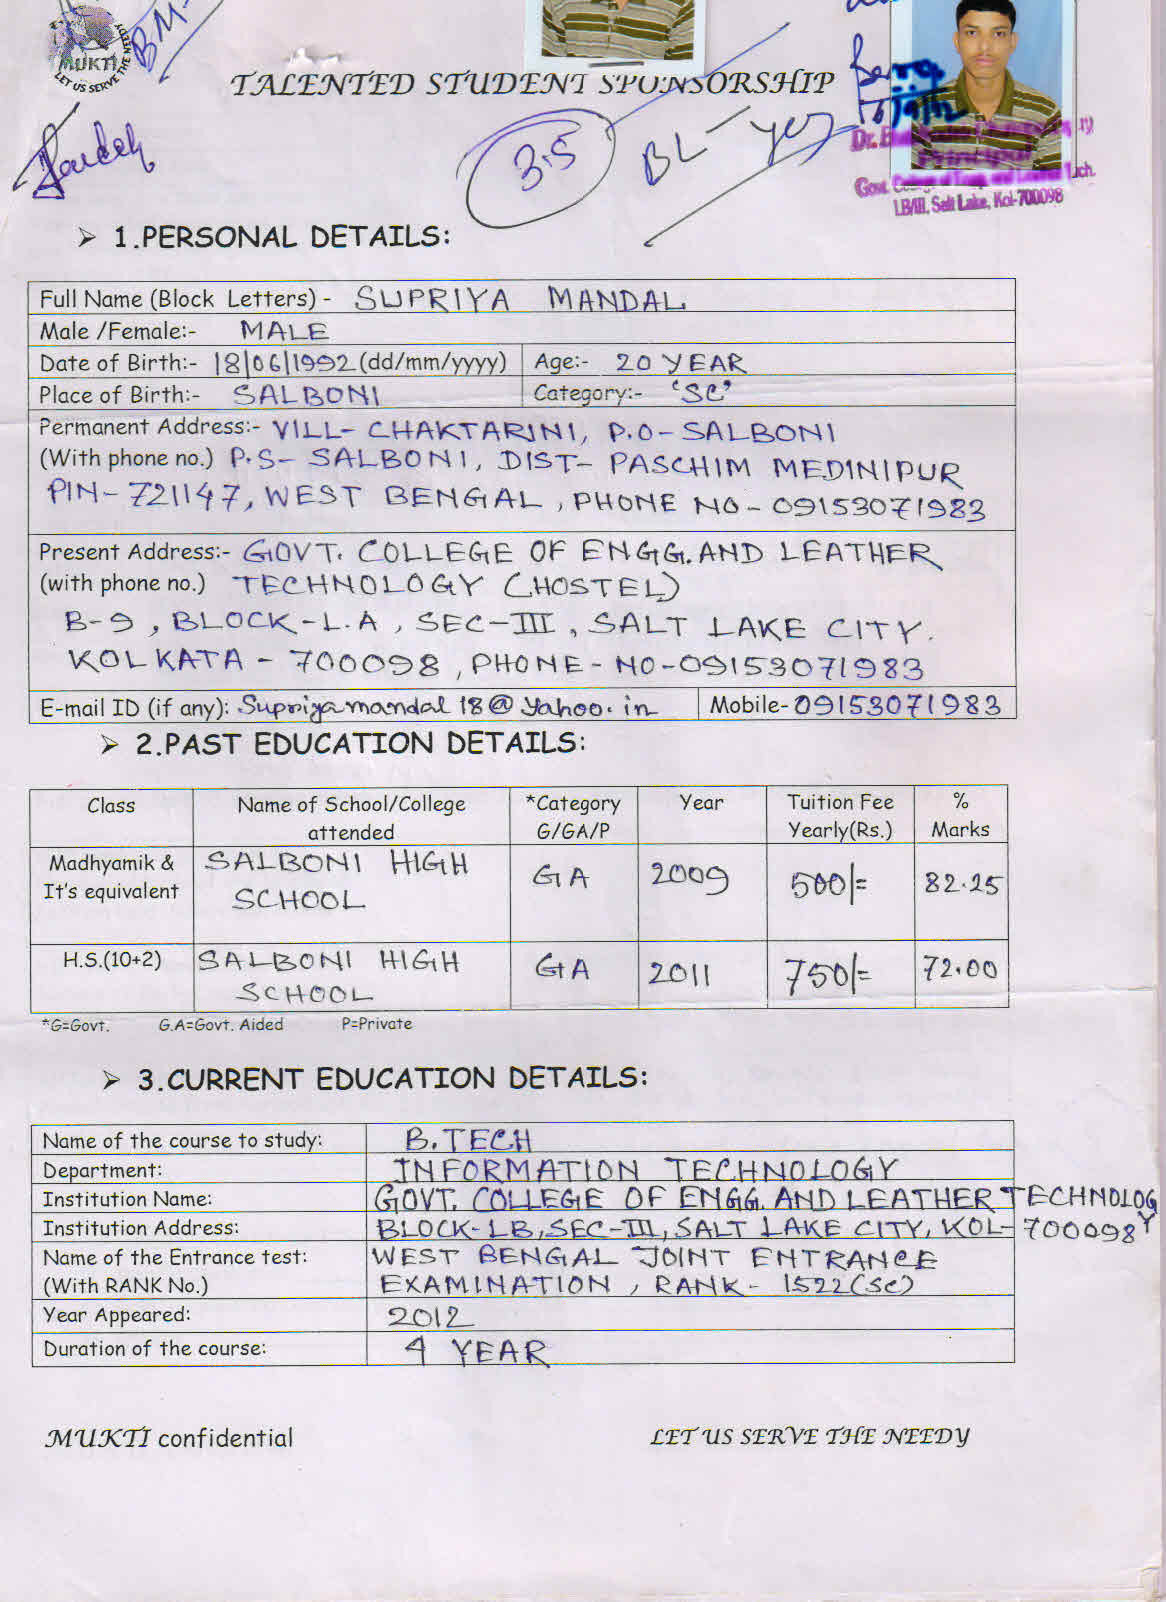 MUKTI
LET US SERVE THE NEEDY
BM-
TALENTED STUDENT SPONSORSHIP
3.5
BL- yes
Govt. College of Engg. and Leather Tech.
LB/III, Salt Lake, Kol-700098
➢ 1.PERSONAL DETAILS:
Full Name (Block Letters) - SUPRIYA MANDAL
Male /Female:- MALE
Date of Birth:- 18/06/1992 (dd/mm/yyyy) Age:- 20 YEAR
Place of Birth:- SALBONI Category:- 'SC'
Permanent Address:- VILL- CHAKTARINI, P.O-SALBONI
(With phone no.) P.S- SALBONI, DIST- PASCHIM MEDINIPUR
PIN- 721147, WEST BENGAL, PHONE NO- 09153071983
Present Address:- GOVT. COLLEGE OF ENGG. AND LEATHER
(with phone no.) TECHNOLOGY (HOSTEL)
B-9, BLOCK-L.A, SEC-III, SALT LAKE CITY.
KOLKATA - 700098, PHONE- NO-09153071983
E-mail ID (if any): Supriyamandal18@yahoo.in Mobile- 09153071983
➢ 2.PAST EDUCATION DETAILS:
Class Name of School/College attended *Category G/GA/P Year Tuition Fee Yearly(Rs.) % Marks
Madhyamik & It's equivalent SALBONI HIGH SCHOOL GA 2009 500/= 82.25
H.S.(10+2) SALBONI HIGH SCHOOL GA 2011 750/= 72.00
*G=Govt. G.A=Govt. Aided P=Private
➢ 3.CURRENT EDUCATION DETAILS:
Name of the course to study: B.TECH
Department: INFORMATION TECHNOLOGY
Institution Name: GOVT. COLLEGE OF ENGG. AND LEATHER TECHNOLOGY
Institution Address: BLOCK-LB, SEC-III, SALT LAKE CITY, KOL-700098
Name of the Entrance test: WEST BENGAL JOINT ENTRANCE
(With RANK No.) EXAMINATION, RANK- 1522(SC)
Year Appeared: 2012
Duration of the course: 4 YEAR
MUKTI confidential LET US SERVE THE NEEDY